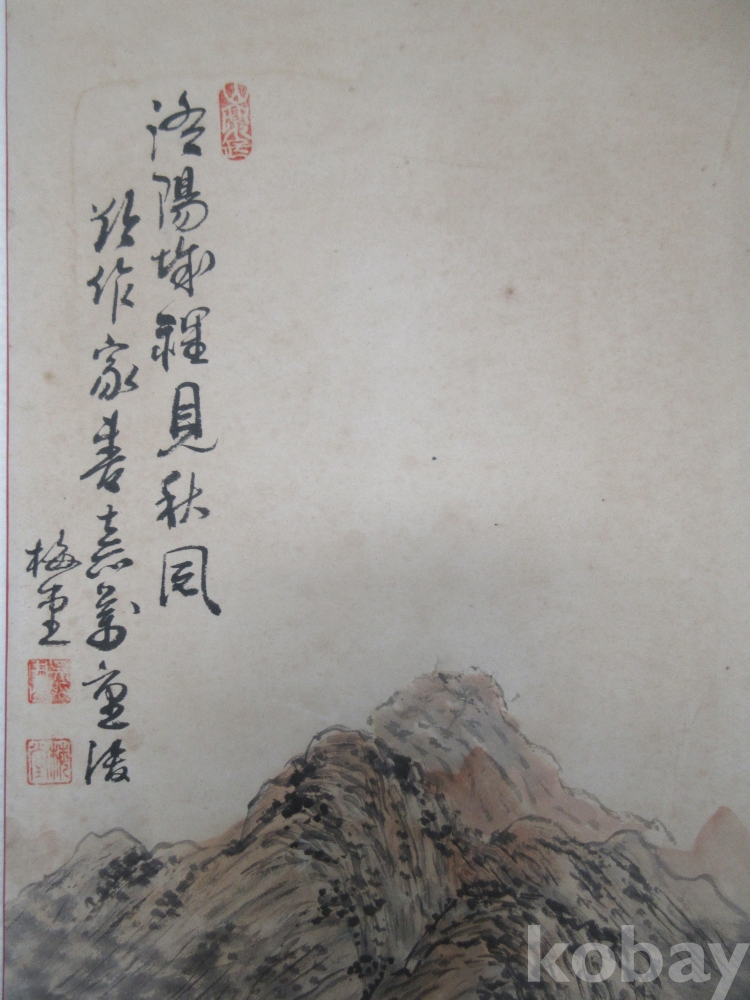 洛陽城裡見秋風
欲作家書意萬重後
梅堂
梅堂
kobay